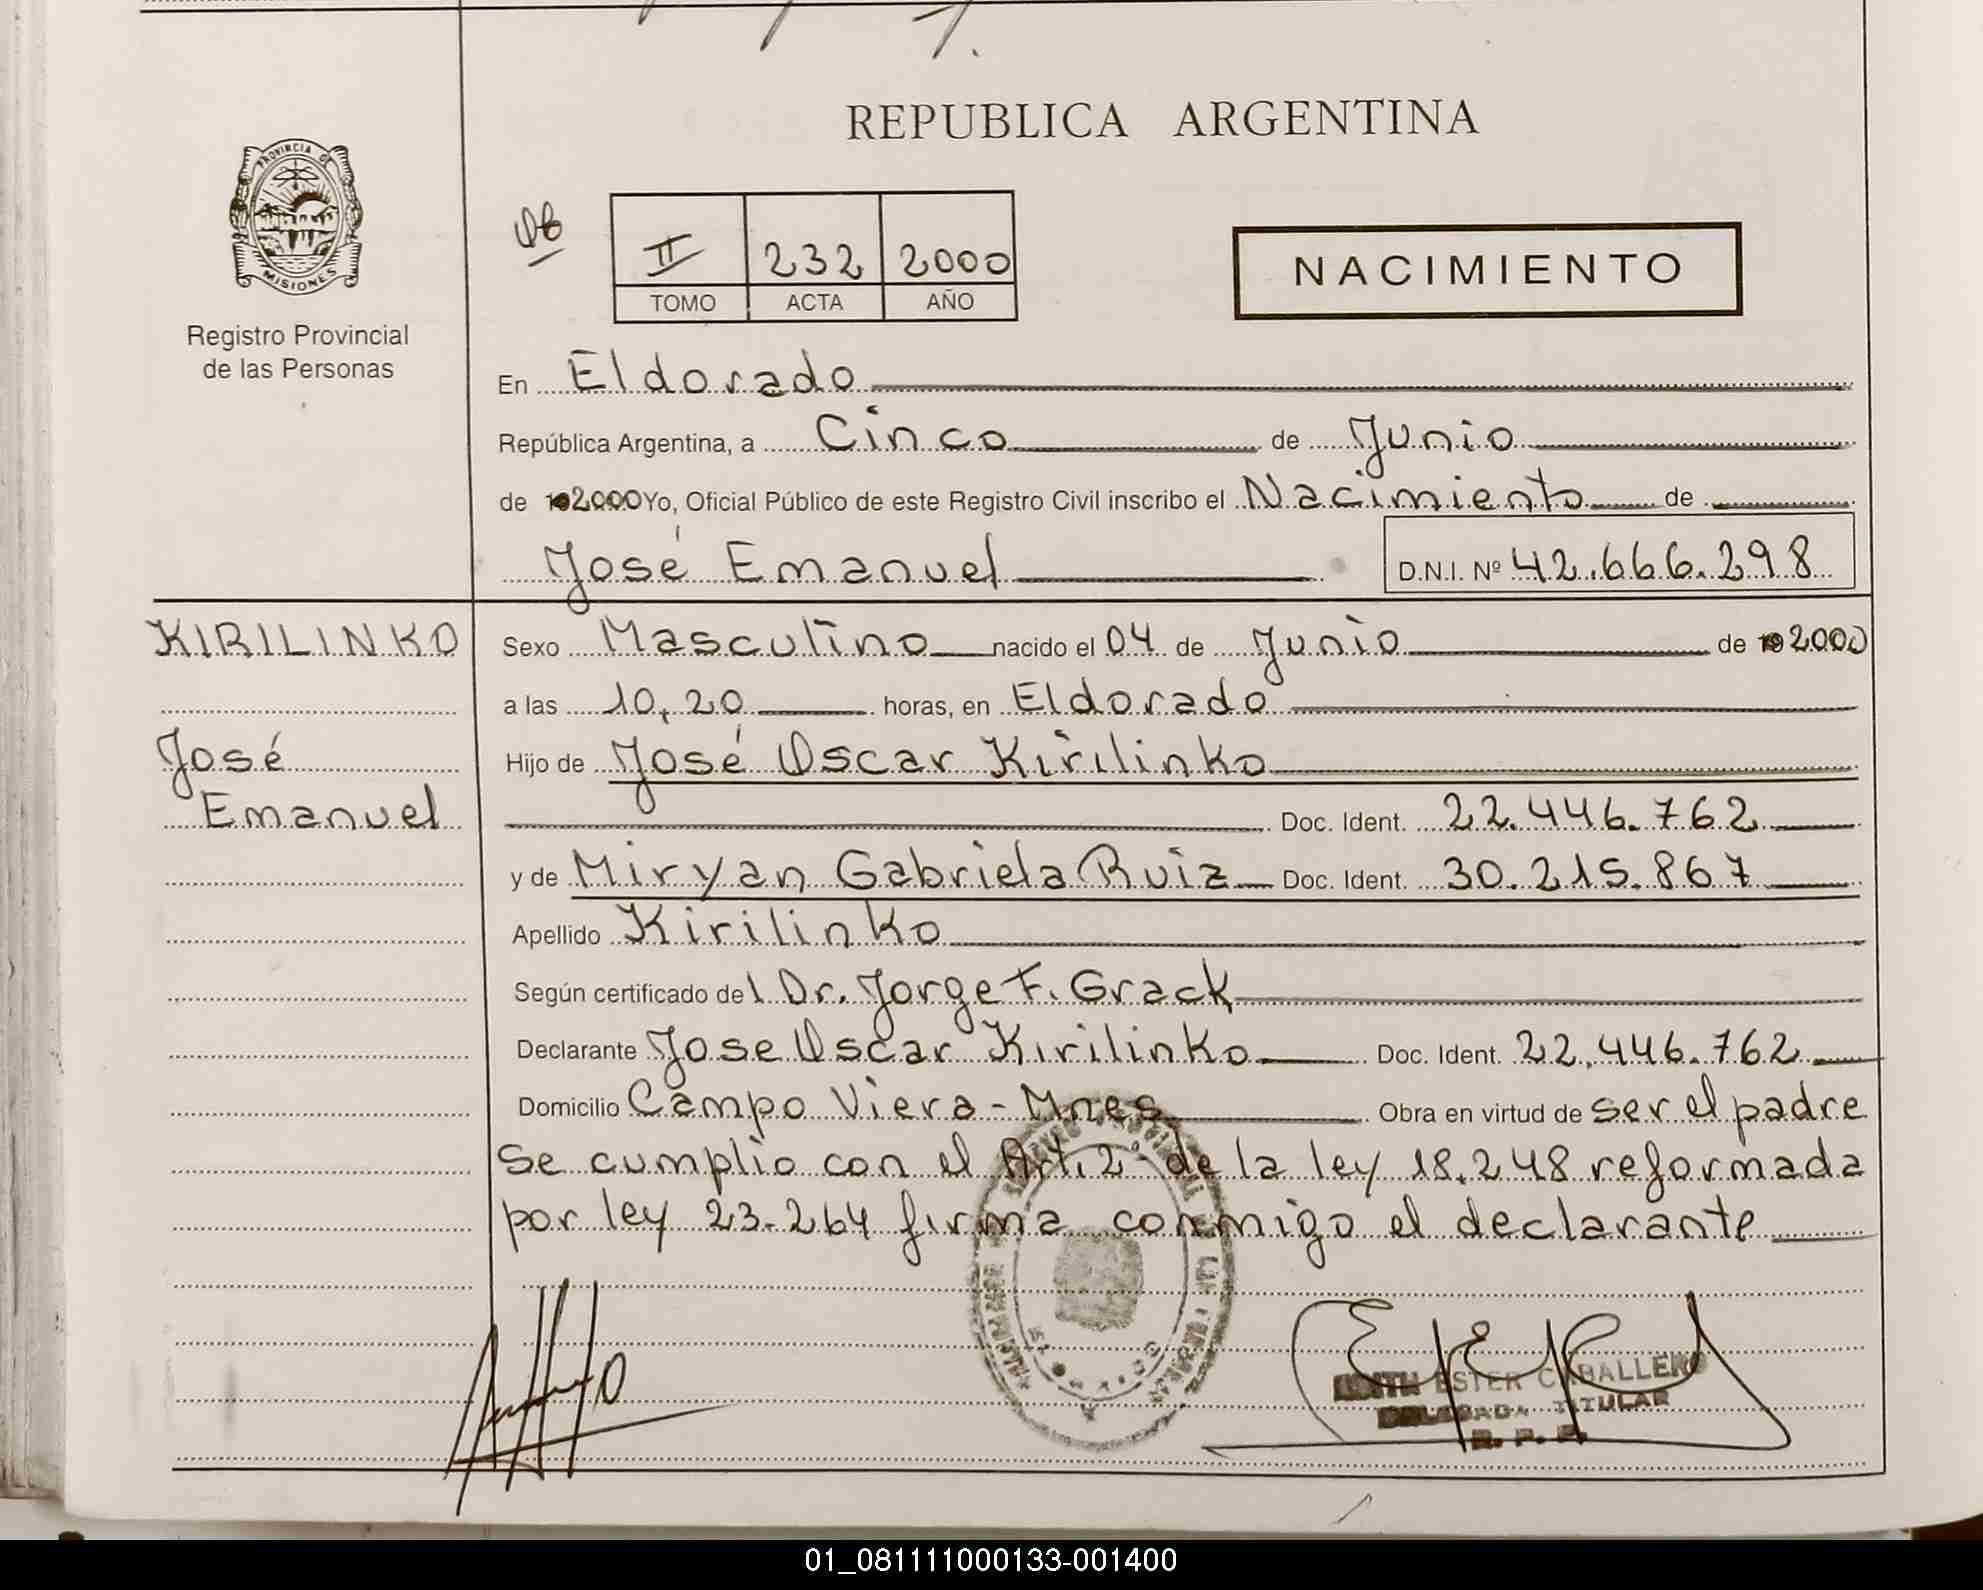 REPUBLICA ARGENTINA
PROVINCIA DE
MISIONES
Registro Provincial
de las Personas
II 232 2000
TOMO ACTA AÑO
NACIMIENTO
En Eldorado
República Argentina, a Cinco de Junio
de 2000 Yo, Oficial Público de este Registro Civil inscribo el Nacimiento de
José Emanuel D.N.I. Nº 42.666.298
KIRILINKO
José
Emanuel
Sexo Masculino nacido el 04 de Junio de 2000
a las 10,20 horas, en Eldorado
Hijo de José Oscar Kirilinko
Doc. Ident. 22.446.762
y de Miryan Gabriela Ruiz Doc. Ident. 30.215.867
Apellido Kirilinko
Según certificado del Dr. Jorge F. Grack
Declarante Jose Oscar Kirilinko Doc. Ident. 22.446.762
Domicilio Campo Viera - Mnes Obra en virtud de ser el padre
Se cumplio con el Art. 2° de la ley 18.248 reformada
por ley 23.264 firma conmigo el declarante
EDITH ESTER CABALLERO
DELEGADA TITULAR
R. P. P.
01_081111000133-001400